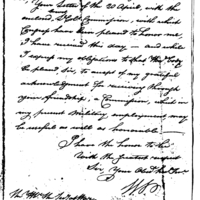 Your Letter of the 20 April, with the
enclosed, Commission, with which
Congress have been pleased to honor me,
I have received this day — and while
I express my obligations to that Body
be pleased, Sir, to accept of my grateful
acknowledgment for receiving through
your friendship, a Commission, which in
my present Military employment, may
be useful as well as honorable —
I have the honor to be
With the greatest respect
Sir, Your Obed